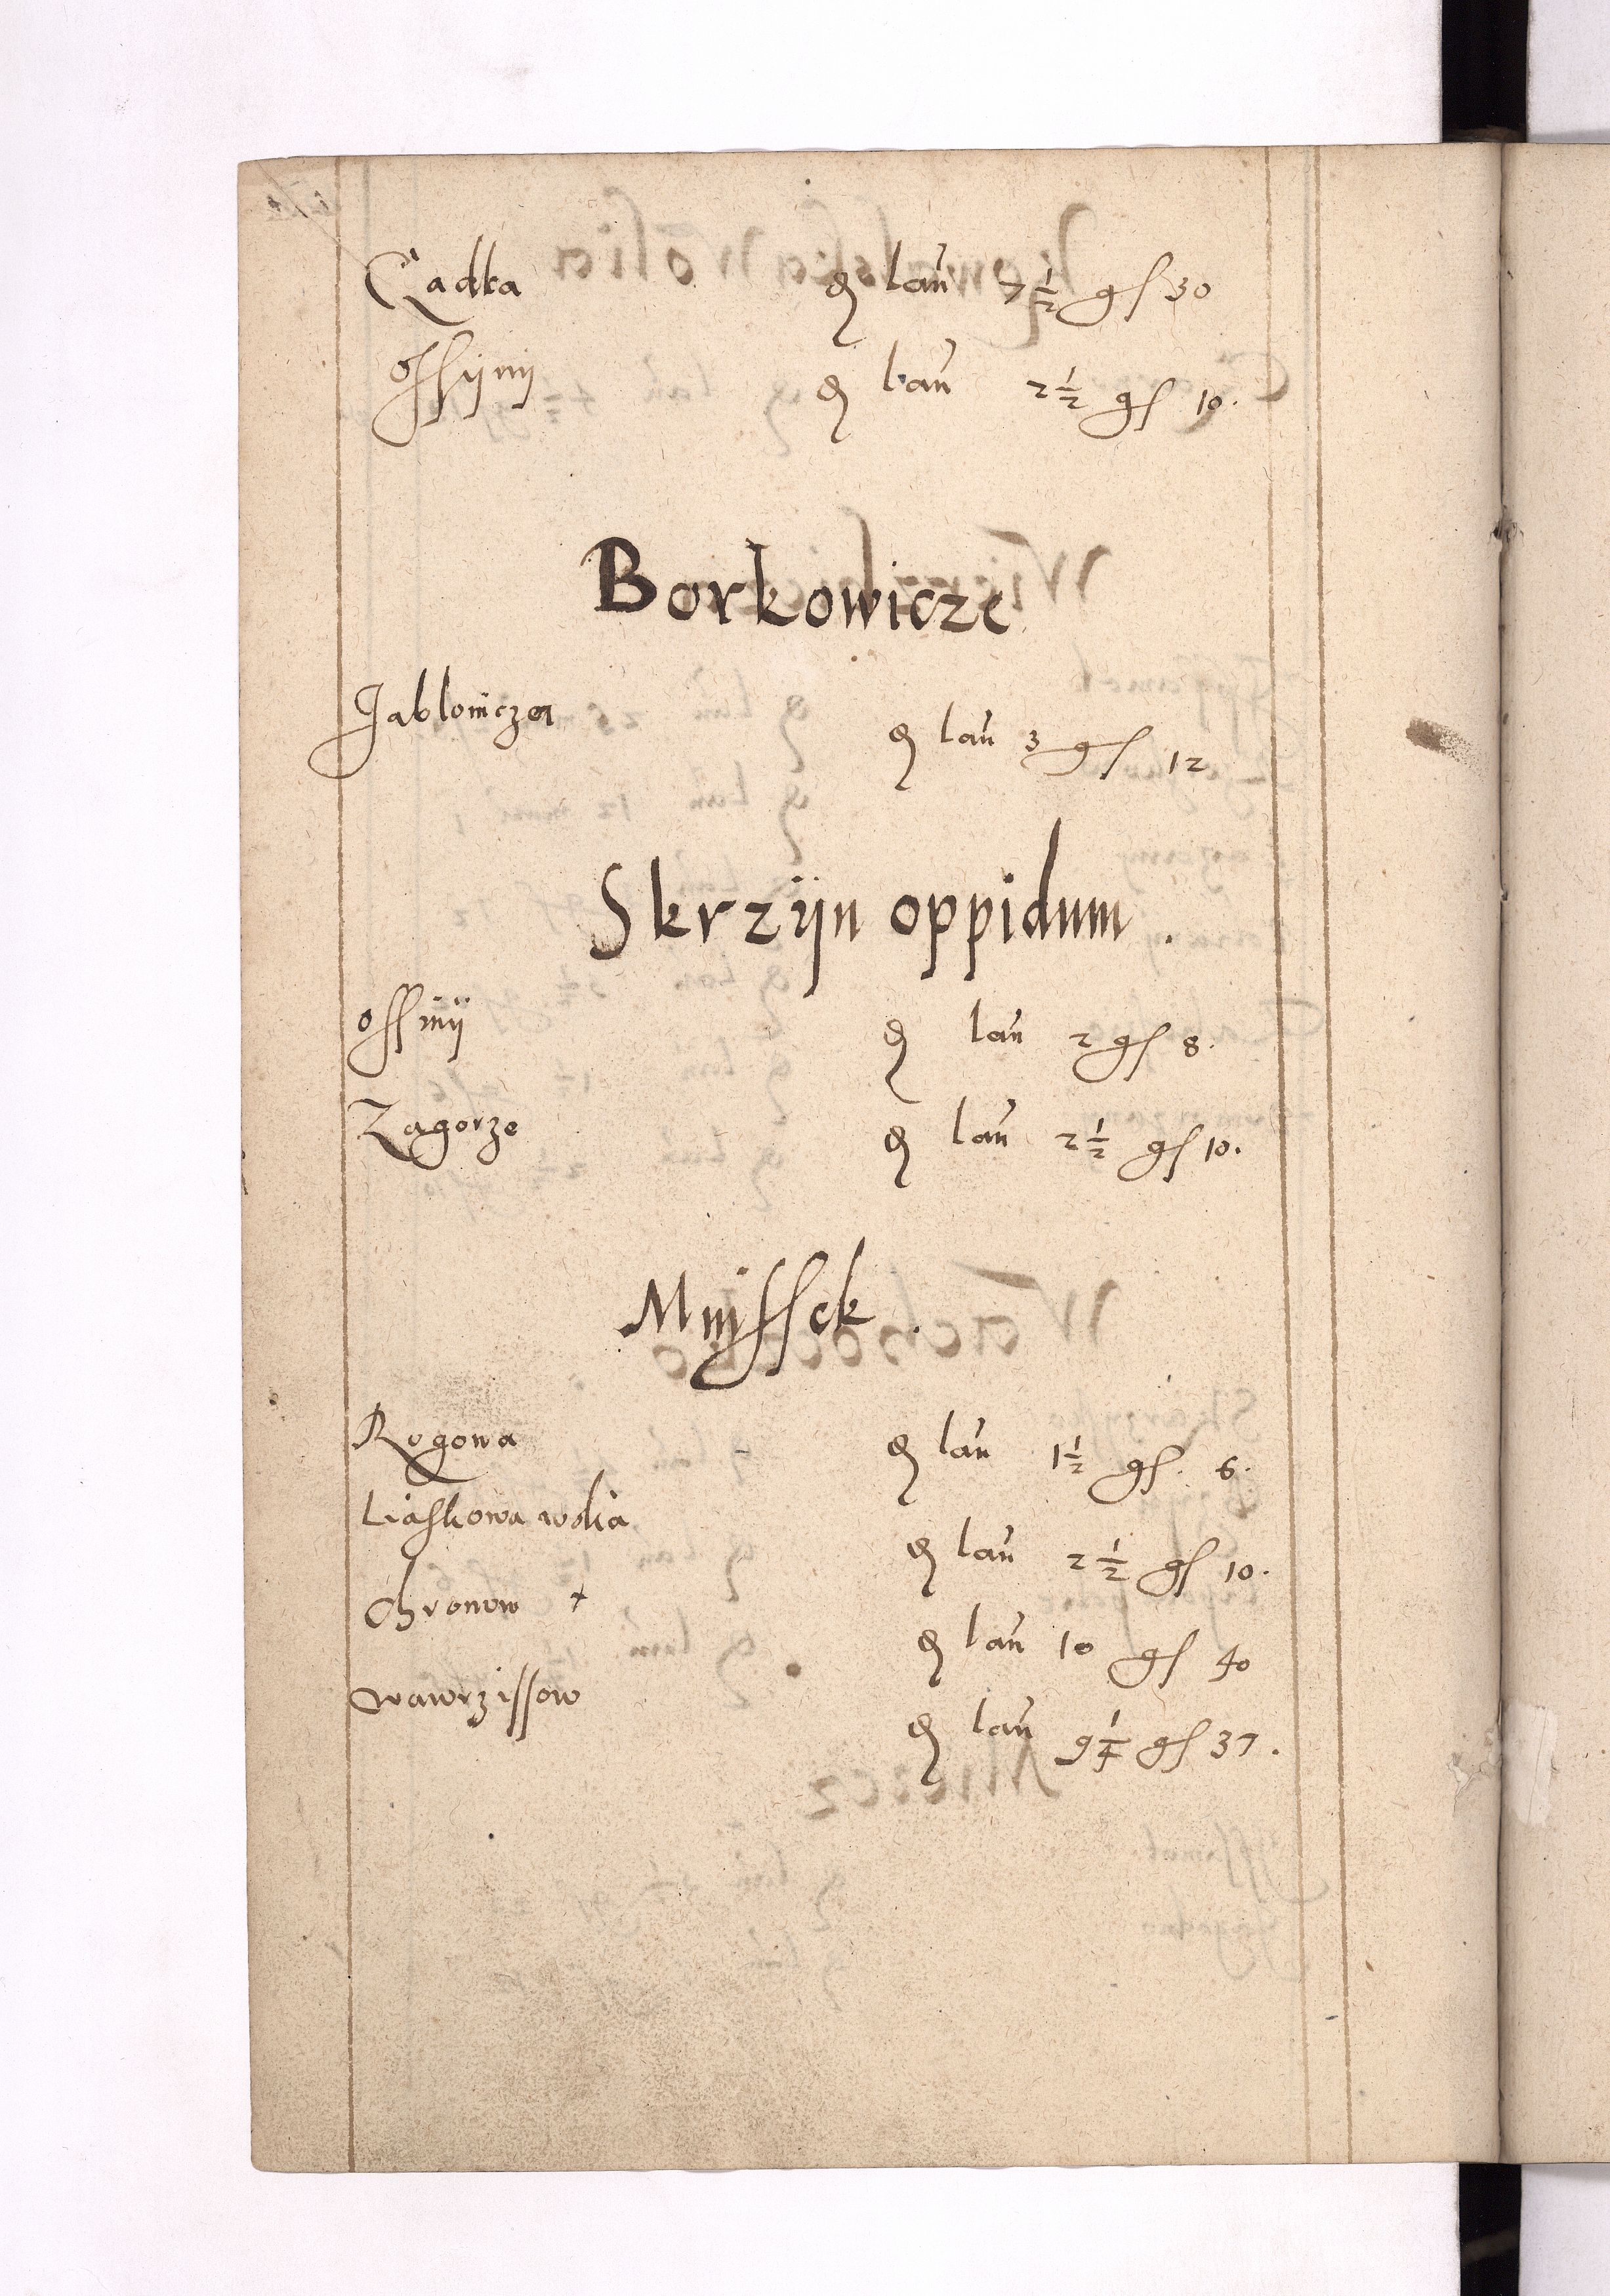 Cadka de lan 7½ gſ 30
Oſſijnij de lan 2½ gſ 10.
Borkowicze
Jablonicza de lan 3 gſ 12
Skrzijn oppidum.
oſſinij de lan 2 gſ 8.
Zagorze de lan 2½ gſ 10.
Mnijſſek.
Rogowa de lan 1½ gſ. 6.
Liaſkowa wolia de lan 2½ gſ 10.
Chronow + de lan 10 gſ 40
wawrziſſow de lan 9¼ gſ 37.